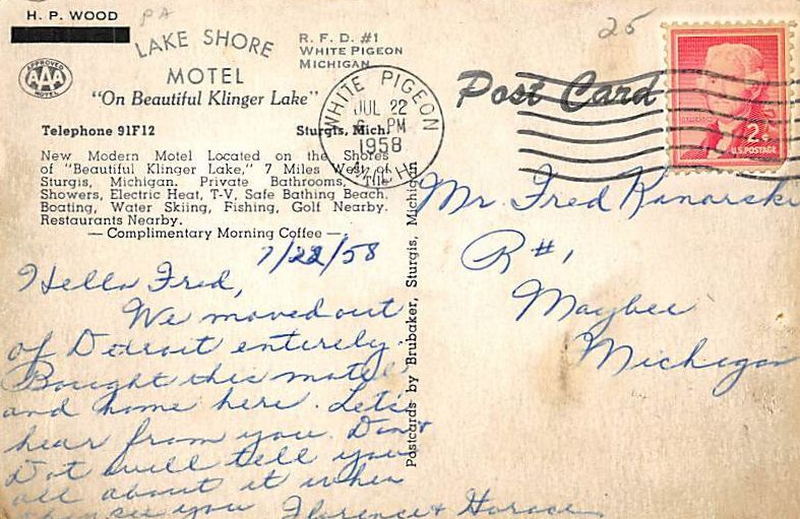 H. P. WOOD
PA
LAKE SHORE
MOTEL
R. F. D. #1
WHITE PIGEON
MICHIGAN
APPROVED
AAA
MOTEL
"On Beautiful Klinger Lake"
Telephone 91F12 Sturgis, Mich.
New Modern Motel Located on the Shores
of "Beautiful Klinger Lake," 7 Miles West of
Sturgis, Michigan. Private Bathrooms, Tile
Showers, Electric Heat, T-V, Safe Bathing Beach.
Boating, Water Skiing, Fishing, Golf Nearby.
Restaurants Nearby.
— Complimentary Morning Coffee —
7/22/58
Hello Fred,
We moved out
of Detroit entirely.
Bought this motel
and home here. Let's
hear from you. Don &
Dot will tell you
all about it when
they see you Florence & Horace
Postcards by Brubaker, Sturgis, Michigan
WHITE PIGEON
JUL 22
6 PM
1958
MICH.
25
Post Card
2¢
U.S. POSTAGE
Mr. Fred Kanarski
R #1
Maybee
Michigan